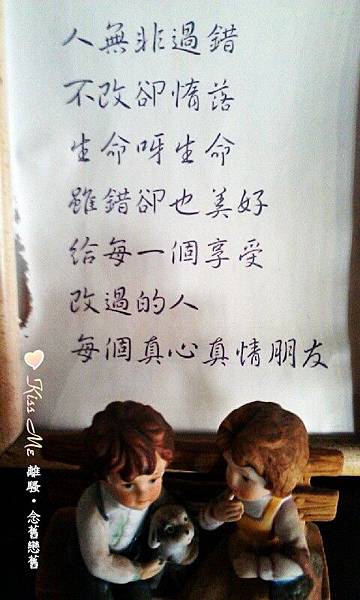 人無非過錯
不改卻惰落
生命呀生命
雖錯卻也美好
給每一個享受
改過的人
每個真心真情朋友
Kiss Me 離騷·念舊戀舊